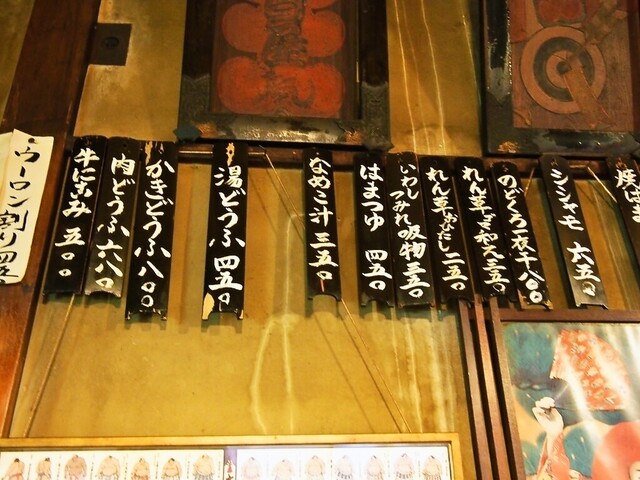 ウーロン割り 四五
牛にこみ 五〇〇
肉どうふ 六八〇
かきどうふ 八〇〇
湯どうふ 四五〇
なめこ汁 三五〇
はまつゆ 四五〇
いわしつみれ吸物 三五〇
れん草おひたし 二五〇
れん草ごま和え 三五〇
のどくろ一夜干 八〇〇
シシャモ 六五〇
焼は